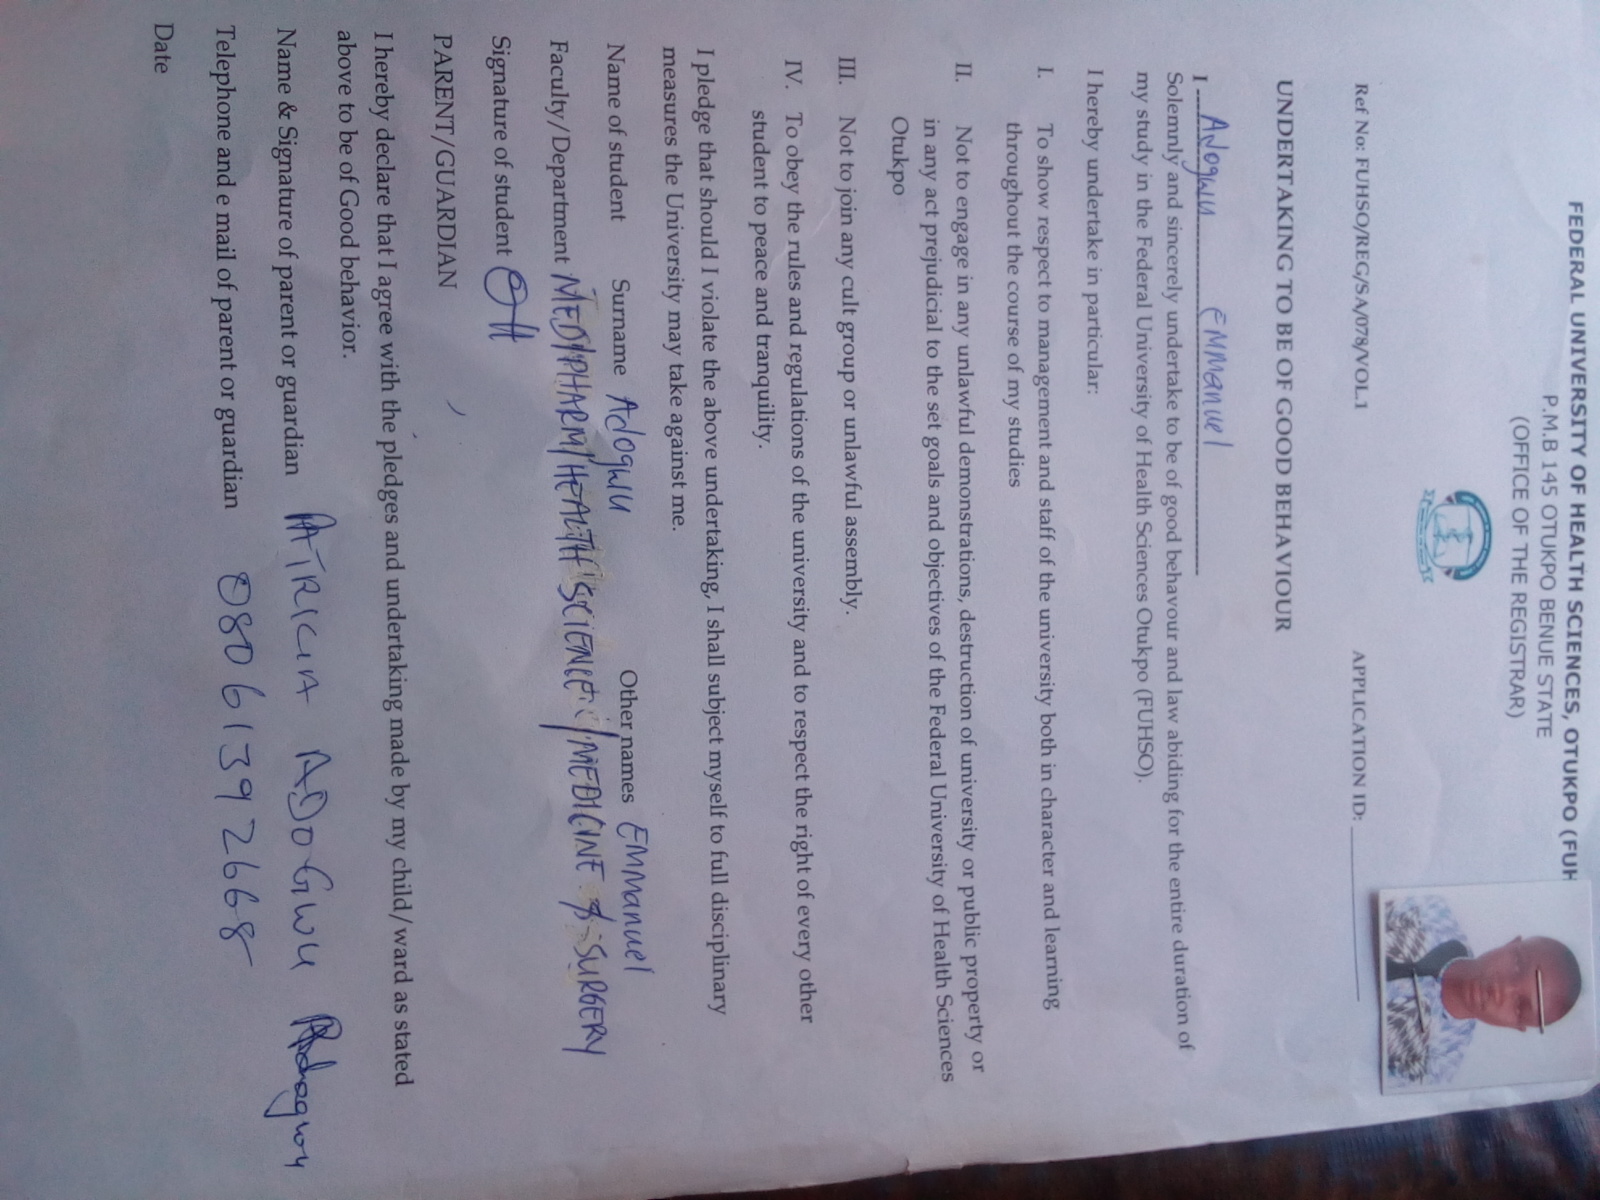 FEDERAL UNIVERSITY OF HEALTH SCIENCES, OTUKPO (FUH
P.M.B 145 OTUKPO BENUE STATE
(OFFICE OF THE REGISTRAR)
Ref No: FUHSO/REG/SA/078/VOL.1 APPLICATION ID:
UNDERTAKING TO BE OF GOOD BEHAVIOUR
I Adogwu Emmanuel
Solemnly and sincerely undertake to be of good behavour and law abiding for the entire duration of
my study in the Federal University of Health Sciences Otukpo (FUHSO).
I hereby undertake in particular:
I. To show respect to management and staff of the university both in character and learning
throughout the course of my studies
II. Not to engage in any unlawful demonstrations, destruction of university or public property or
in any act prejudicial to the set goals and objectives of the Federal University of Health Sciences
Otukpo
III. Not to join any cult group or unlawful assembly.
IV. To obey the rules and regulations of the university and to respect the right of every other
student to peace and tranquility.
I pledge that should I violate the above undertaking, I shall subject myself to full disciplinary
measures the University may take against me.
Name of student Surname Adogwu Other names Emmanuel
Faculty/Department MED/PHARM/HEALTH SCIENCE/MEDICINE & SURGERY
Signature of student
PARENT/GUARDIAN
I hereby declare that I agree with the pledges and undertaking made by my child/ward as stated
above to be of Good behavior.
Name & Signature of parent or guardian PATRICIA ADOGWU
Telephone and e mail of parent or guardian 08061392668
Date